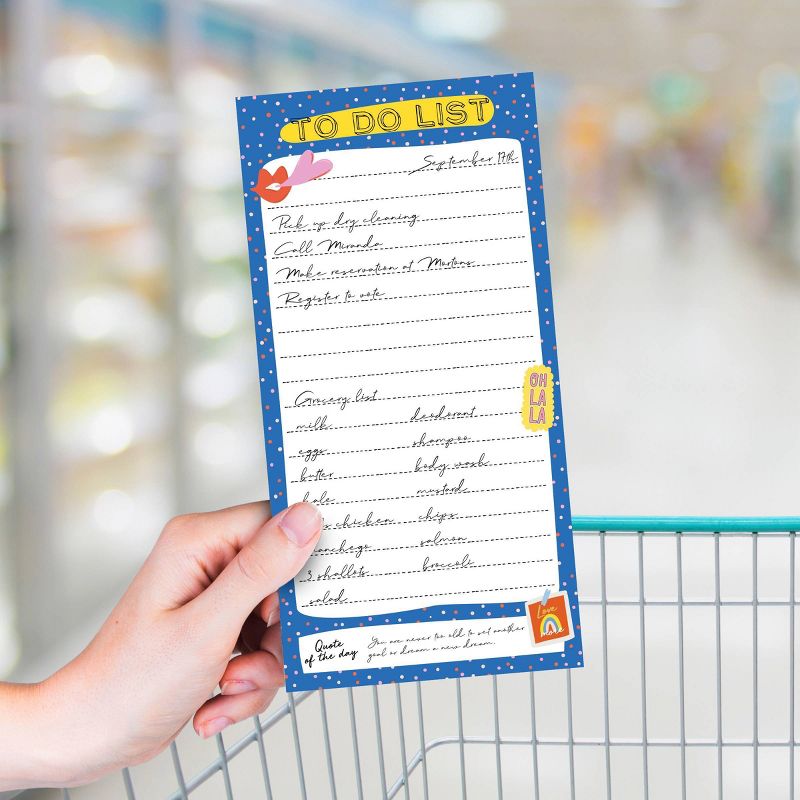 TO DO LIST
September 17th
Pick up dry cleaning
Call Miranda
Make reservation at Mortons
Register to vote
Grocery list
milk deodorant
eggs shampoo
butter body wash
kale mustard
chicken chips
manchego salmon
3 shallots broccoli
salad
OH
LA
LA
Quote
of the day
You are never too old to set another
goal or dream a new dream.
Love
more